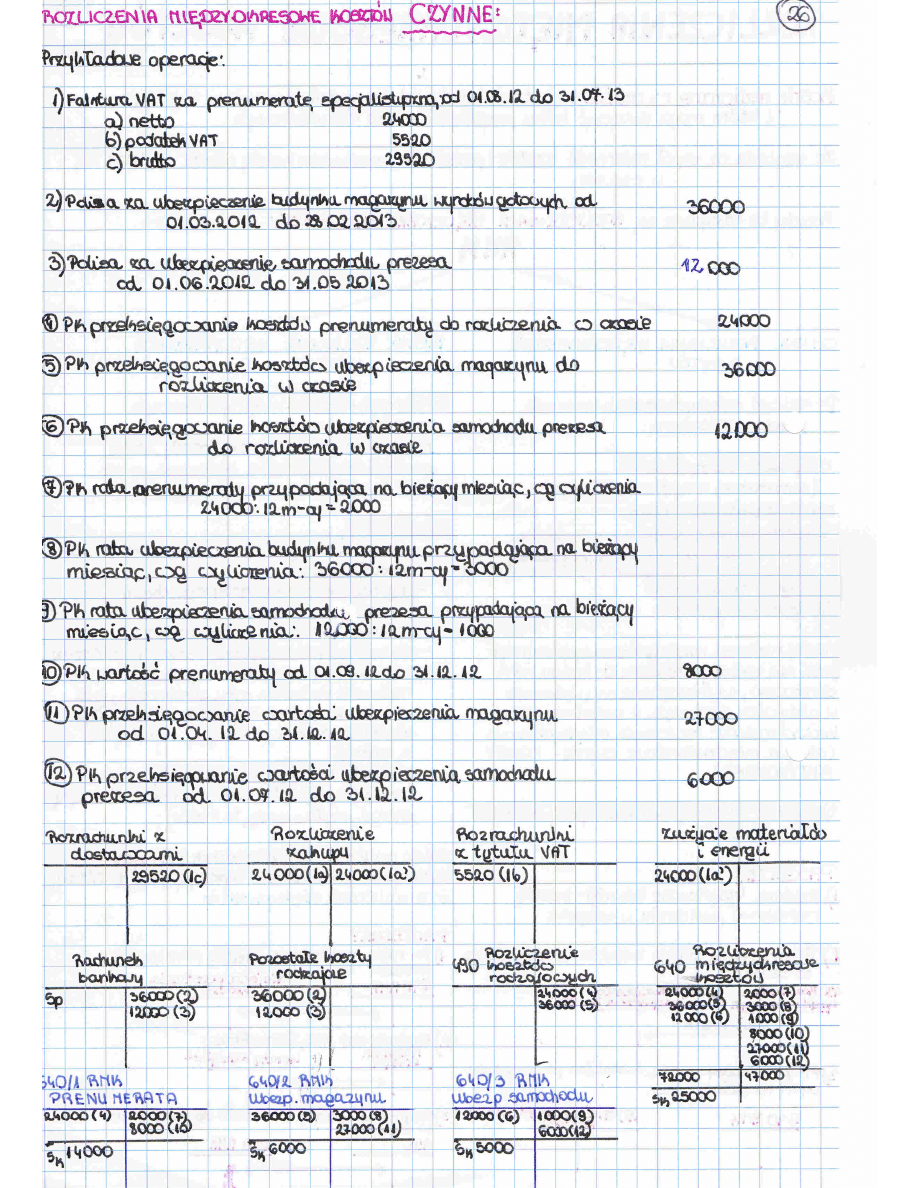 ROZLICZENIA MIĘDZYOKRESOWE KOSZTÓW CZYNNE:
26
Przykładowe operacje:
1) Faktura VAT za prenumeratę specjalistyczną od 01.08.12 do 31.07.13
a) netto 24000
b) podatek VAT 5520
c) brutto 29520
2) Polisa za ubezpieczenie budynku magazynu wyrobów gotowych od 36000
01.03.2012 do 28.02.2013
3) Polisa za ubezpieczenie samochodu prezesa 12000
od 01.06.2012 do 31.05.2013
4) PK przeksięgowanie kosztów prenumeraty do rozliczenia w czasie 24000
5) PK przeksięgowanie kosztów ubezpieczenia magazynu do 36000
rozliczenia w czasie
6) PK przeksięgowanie kosztów ubezpieczenia samochodu prezesa 12000
do rozliczenia w czasie
7) PK rata prenumeraty przypadająca na bieżący miesiąc, wg wyliczenia
24000:12m-cy=2000
8) PK rata ubezpieczenia budynku magazynu przypadająca na bieżący
miesiąc, wg wyliczenia: 36000:12m-cy=3000
9) PK rata ubezpieczenia samochodu prezesa przypadająca na bieżący
miesiąc, wg wyliczenia: 12000:12m-cy=1000
10) PK wartość prenumeraty od 01.09.12 do 31.12.12 8000
11) PK przeksięgowanie wartości ubezpieczenia magazynu 27000
od 01.04.12 do 31.12.12
12) PK przeksięgowanie wartości ubezpieczenia samochodu 6000
prezesa od 01.07.12 do 31.12.12
Rozrachunki z Rozliczenie Rozrachunki zużycie materiałów
dostawcami zakupu z tytułu VAT i energii
29520 (1c) 24000 (1a) 24000 (1a') 5520 (1b) 24000 (1a')
Rachunek Pozostałe koszty 490 Rozliczenie 640 Rozliczenia
bankowy rodzajowe kosztów międzyokresowe
rodzajowych kosztów
Sp 36000 (2) 36000 (2) 24000 (4) 24000 (4) 2000 (7)
12000 (3) 12000 (3) 36000 (5) 36000 (5) 3000 (8)
12000 (6) 1000 (9)
8000 (10)
27000 (11)
6000 (12)
72000 47000
Sk 25000
640/1 RMK 640/2 RMK 640/3 RMK
PRENUMERATA ubezp. magazynu ubezp samochodu
24000 (4) 2000 (7) 36000 (5) 3000 (8) 12000 (6) 1000 (9)
8000 (10) 27000 (11) 6000 (12)
Sk 14000 Sk 6000 Sk 5000